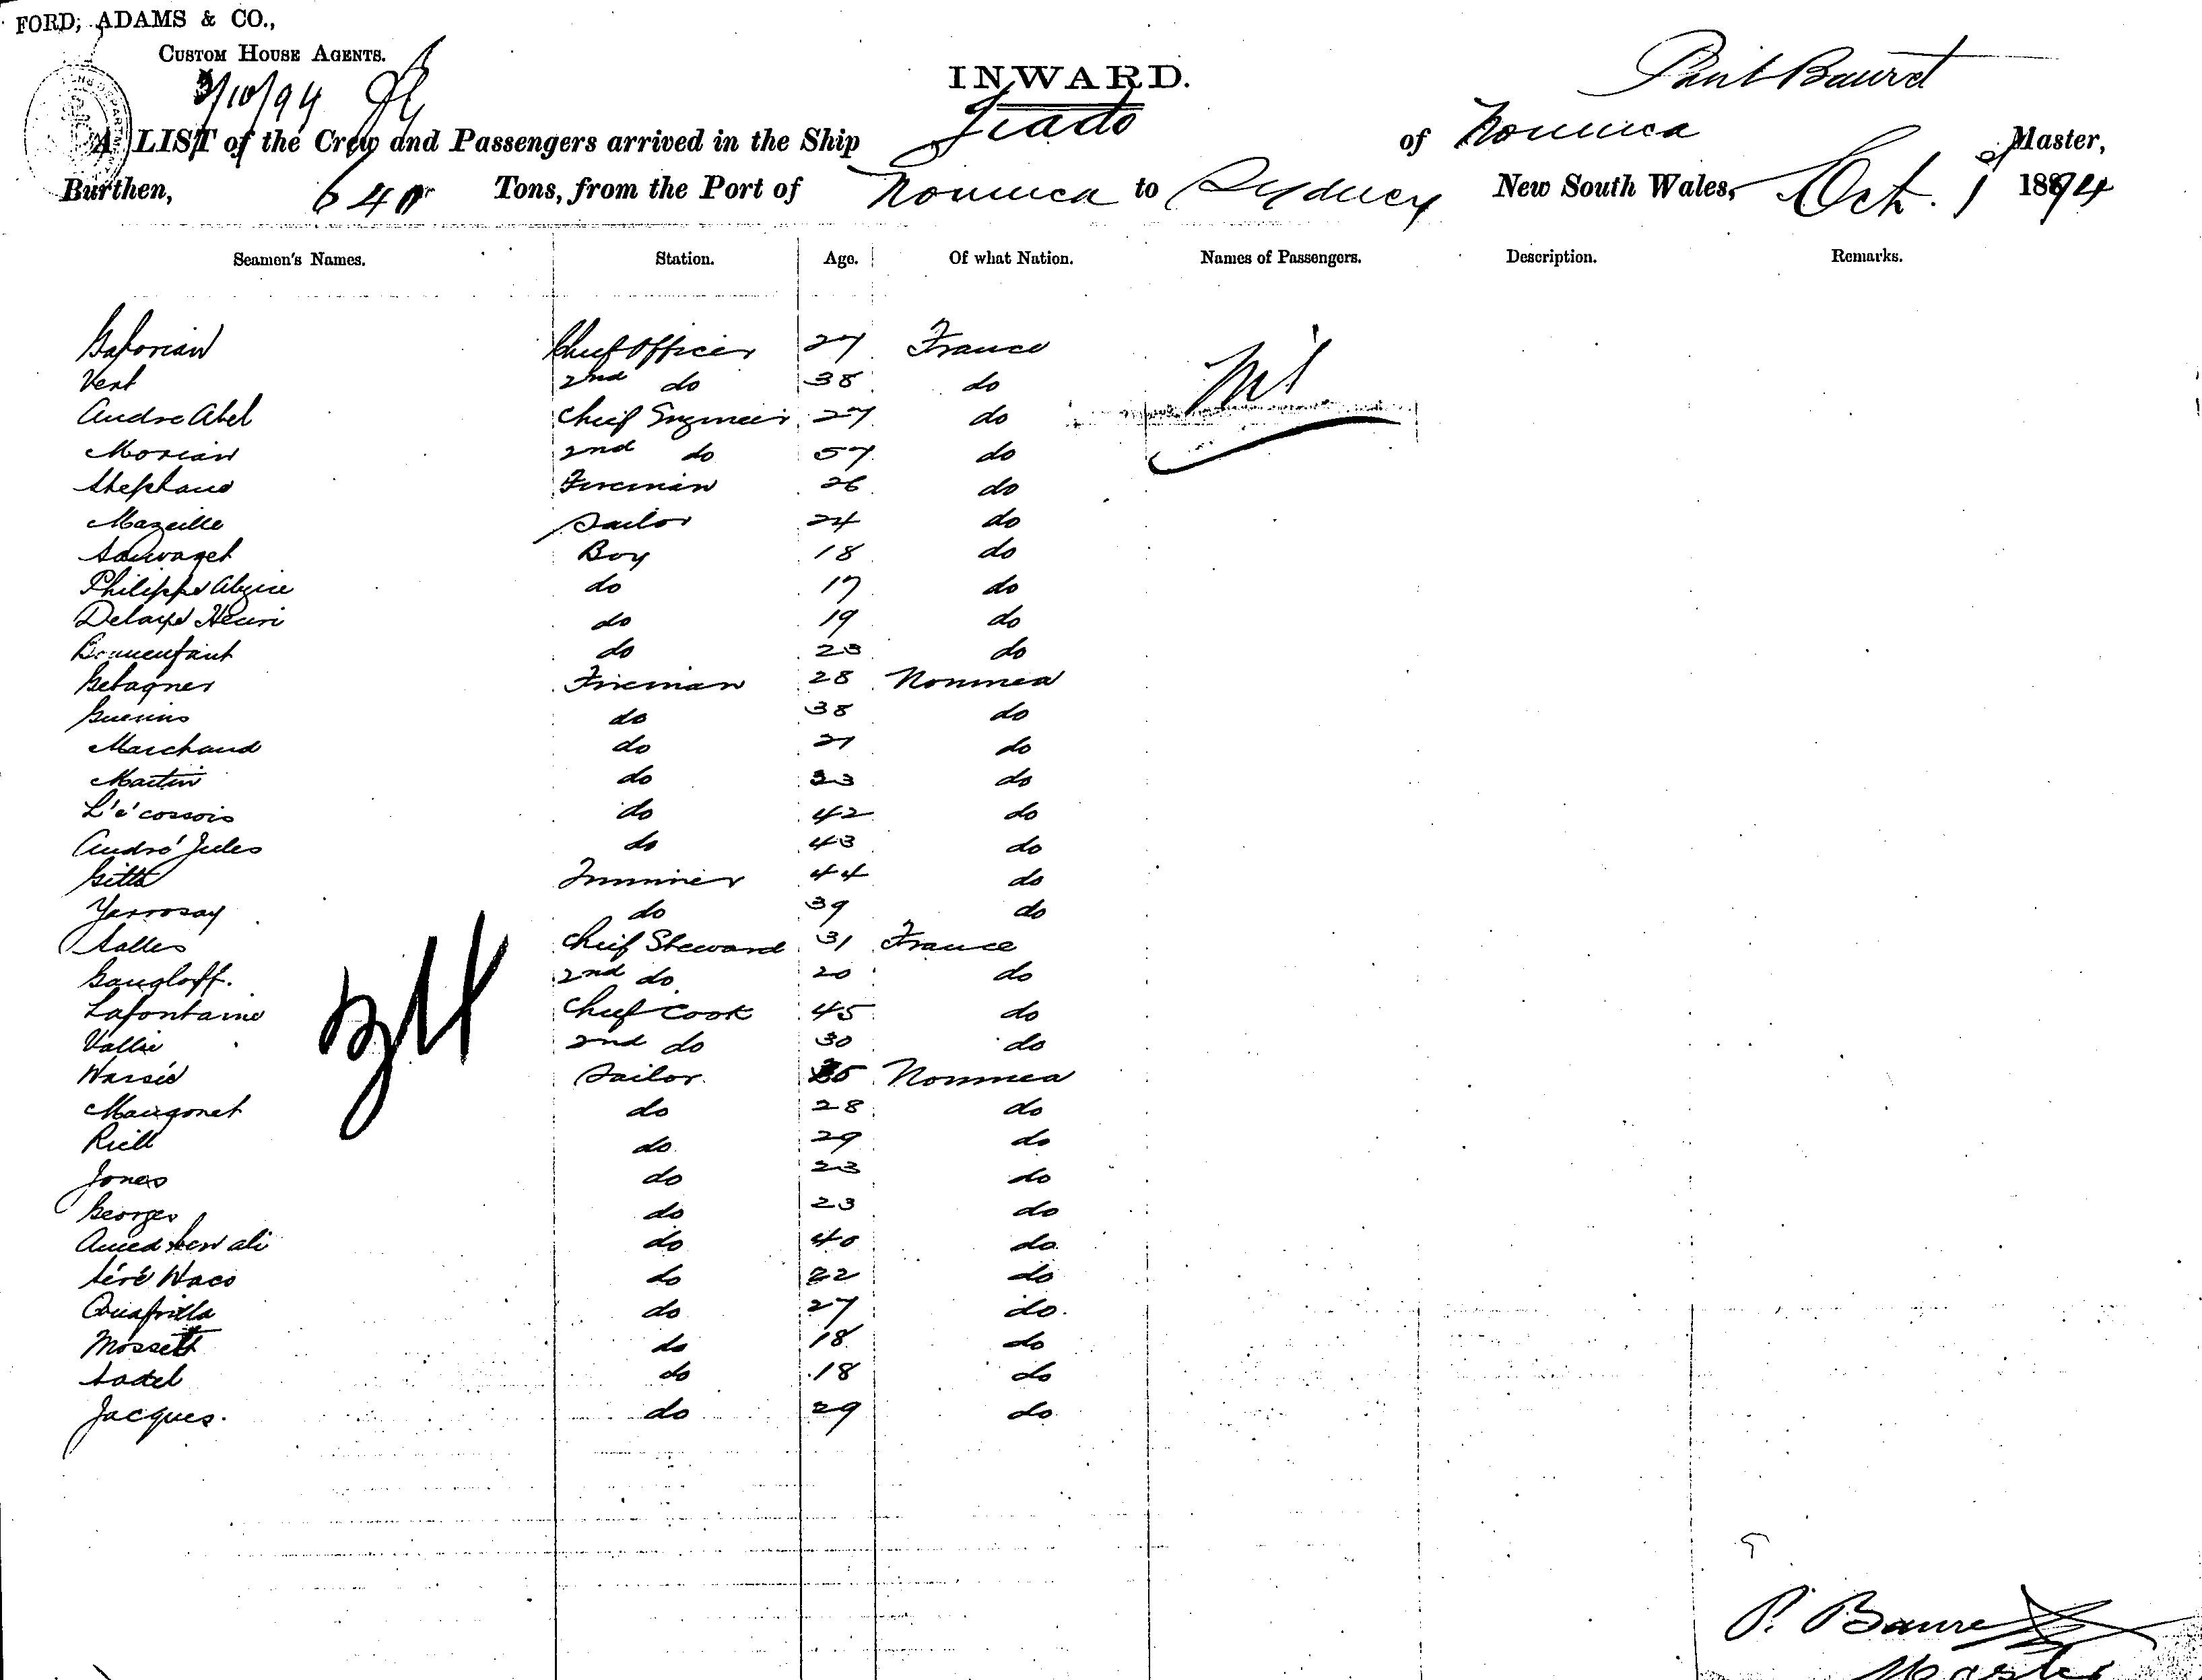 FORD, ADAMS & CO.,
CUSTOM HOUSE AGENTS.
3/10/94
INWARD.
Paul Bauret
A LIST of the Crew and Passengers arrived in the Ship Tiato of Noumea Master,
Burthen, 640 Tons, from the Port of Noumea to Sydney New South Wales, Oct. 1st 1894
Seamen's Names. Station. Age. Of what Nation. Names of Passengers. Description. Remarks.
Gaborian Chief Officer 27 France Nil
Vent 2nd do 38 do
Andre Abel Chief Engineer 27 do
Morian 2nd do 57 do
Stephano Fireman 26 do
Mazeille Sailor 24 do
Sauvaget Boy 18 do
Philippe do 17 do
Henri do 19 do
Bonnenfant do 23 do
Fireman 28 Noumea
Guerins do 38 do
Marchand do 21 do
Martin do 23 do
L'é'cossois do 42 do
André Jules do 43 do
Gitta Trimmer 44 do
Yarrosay do 39 do
Salles Chief Steward 31 France
Gangloff. 2nd do 20 do
Lafontaine Chief Cook 45 do
Vallie 2nd do 30 do
Sailor 35 Noumea
Maugonet do 28 do
Riell do 29 do
Jones do 23 do
Georges do 23 do
Amed ben ali do 40 do
Séré Waco do 22 do
do 27 do
Mossett do 18 do
Sadel do 18 do
Jacques. do 29 do
P. Bauret
Master